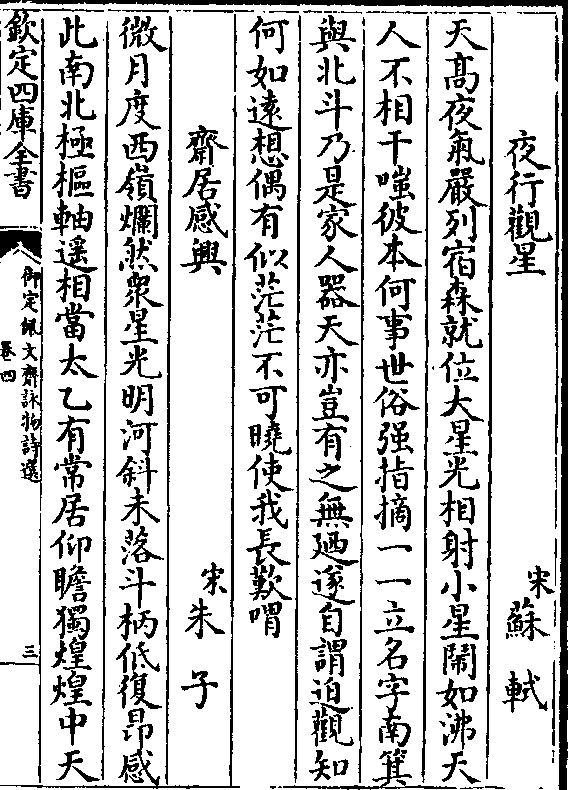 夜行觀星 宋蘇軾
天髙夜氣嚴列宿森就位大星光相射小星鬧如沸天
人不相干嗤彼本何事世俗强指摘一一立名字南箕
與北斗乃是家人器天亦豈有之無廼遂自謂迫觀知
何如遠想偶有似茫茫不可曉使我長歎喟
齋居感興 宋朱子
微月度西嶺爛然衆星光明河斜未落斗柄低復昂感
此南北極樞軸遥相當太乙有常居仰瞻獨煌煌中天
欽定四庫全書
御定佩文齋詠物詩選
卷四
三